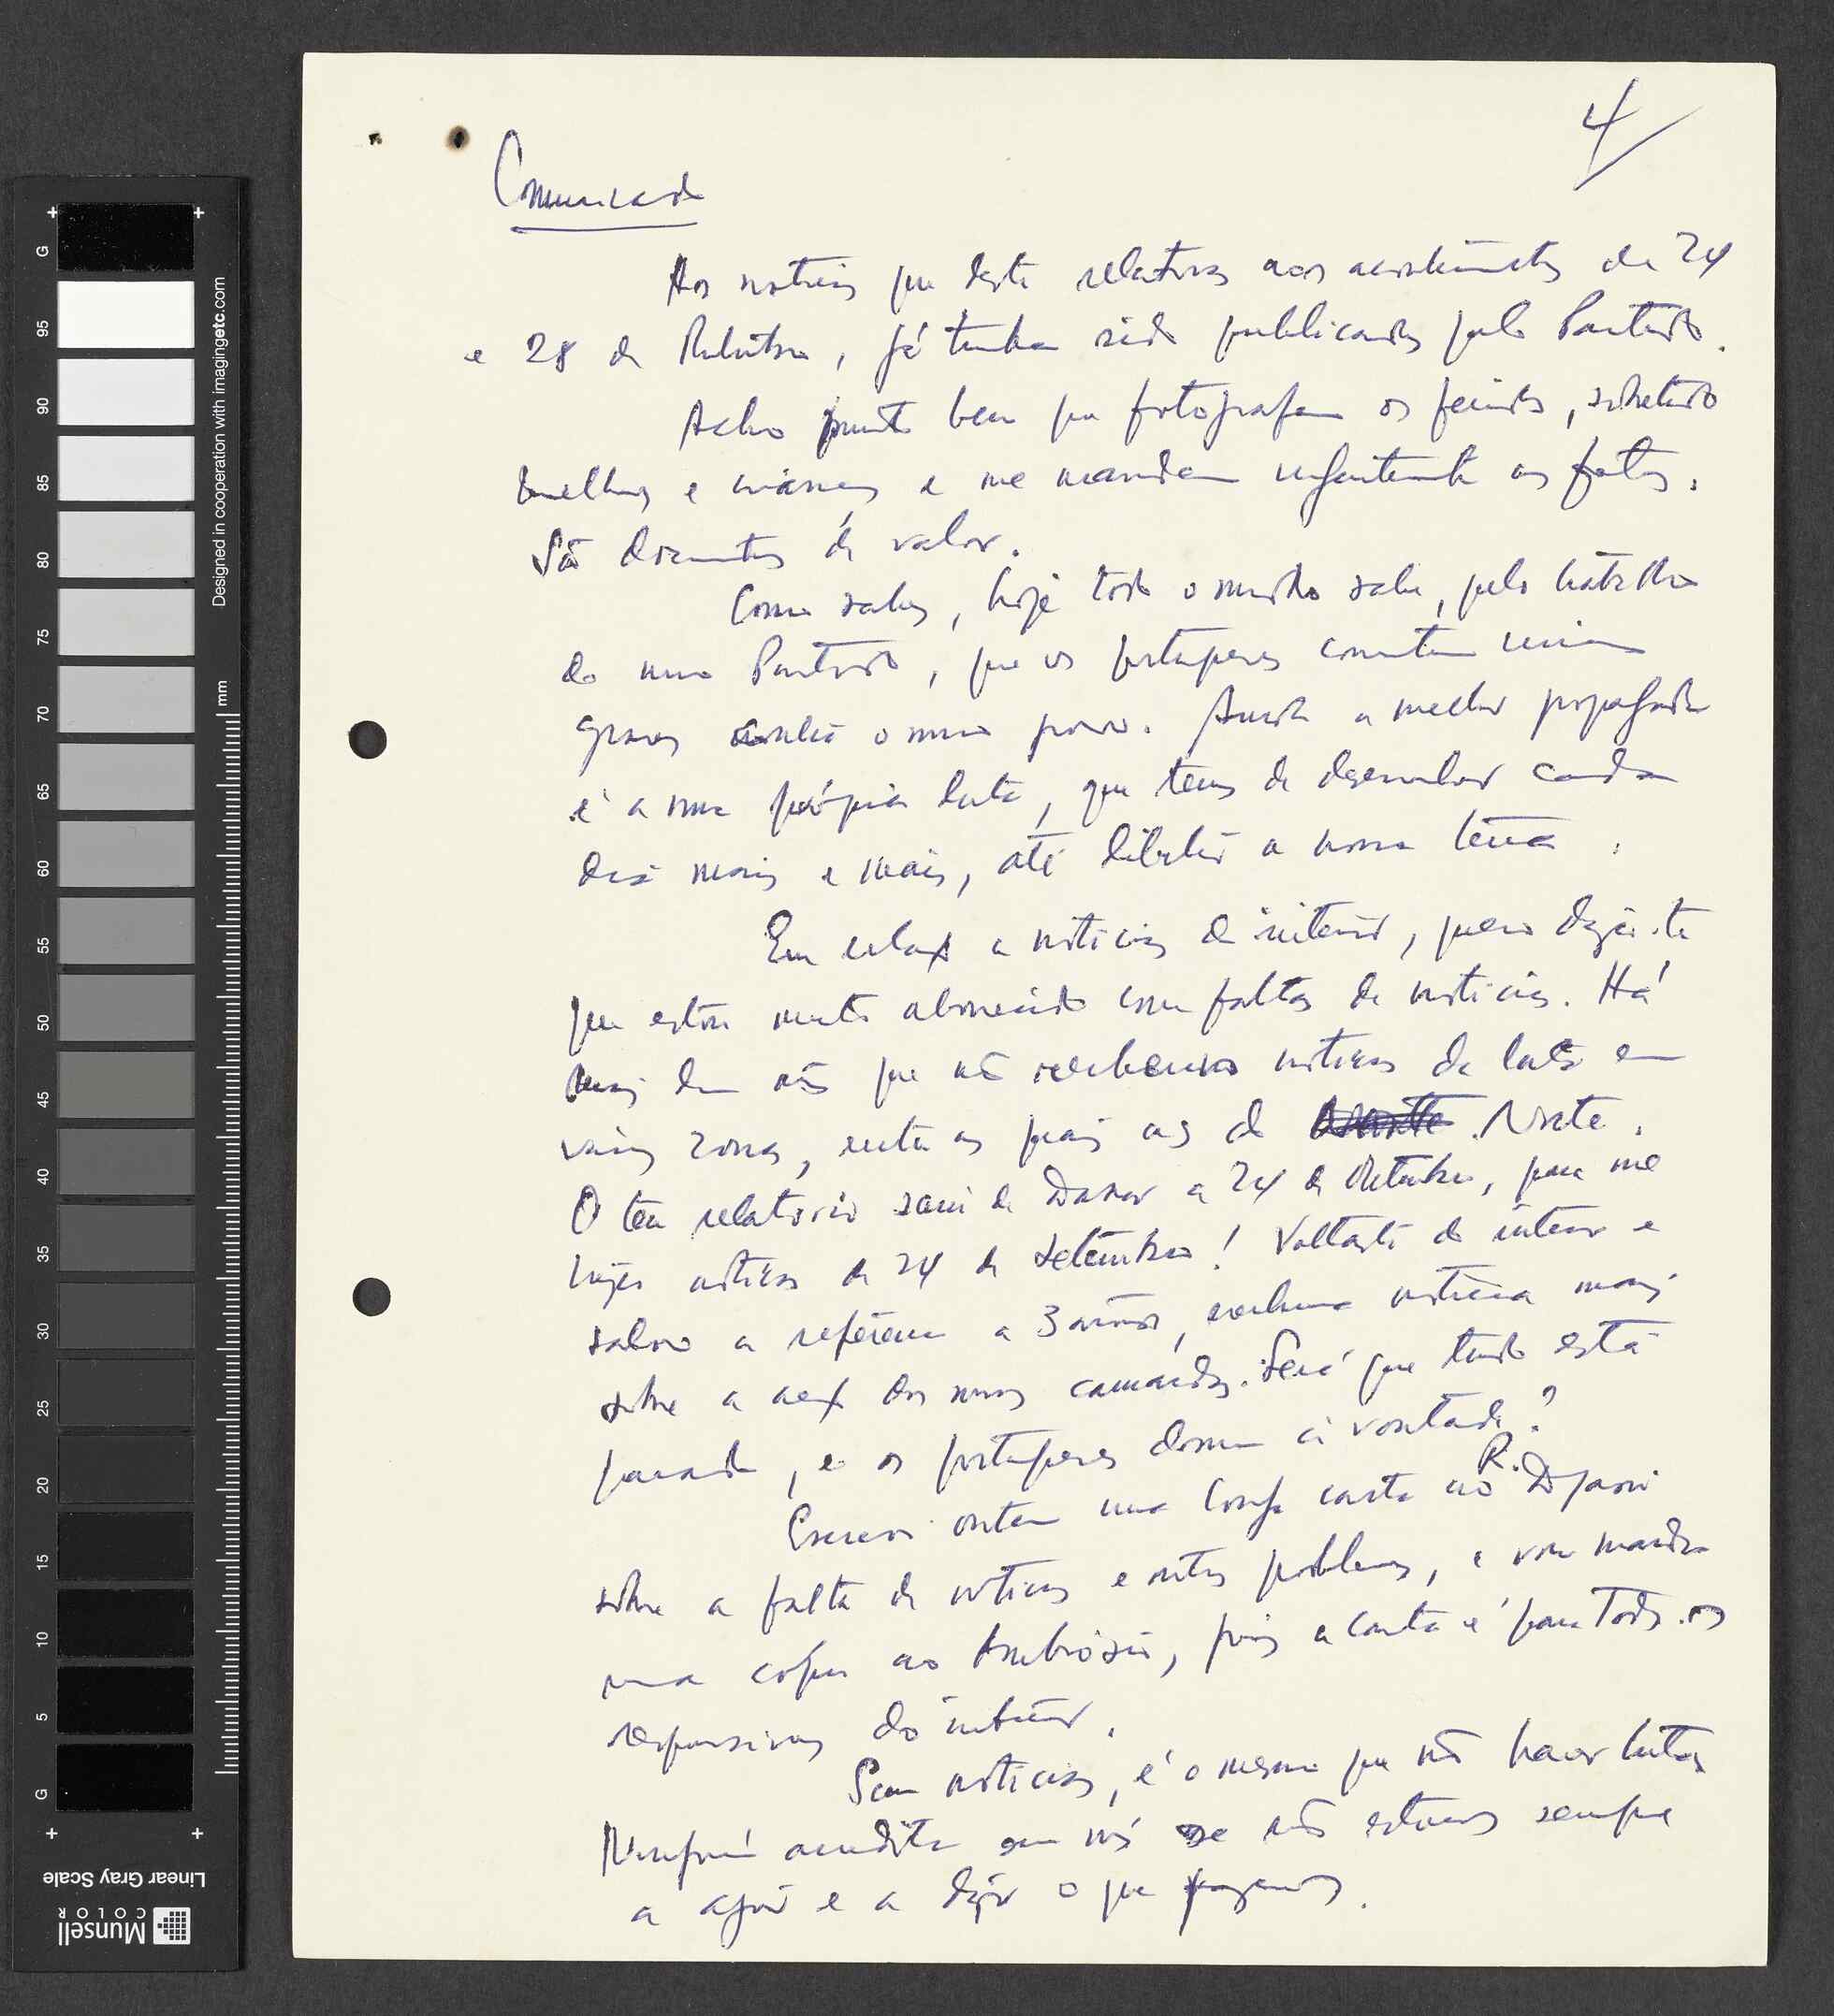 4/
Comunicado
As notícias que deste relativas aos acontecimentos de 24
e 28 de Outubro, já tinham sido publicadas pelo Partido.
Acho muito bem que fotografem os feridos, sobretudo
mulheres e crianças e me mandem urgentemente as fotos.
São documentos de valor.
Como sabes, hoje todo o mundo sabe, pelo trabalho
do nosso Partido, que os portugueses cometem crimes
graves contra o nosso povo. Ainda a melhor propaganda
é a nossa própria luta, que temos de desenvolver cada
dia mais e mais, até libertar a nossa terra.
Em relação a notícias do interior, quero dizer-te
que estou muito aborrecido com faltas de notícias. Há
mais dum mês que não recebemos notícias da luta em
várias zonas, entre as quais as do Norte.
O teu relatório saiu de Dakar a 24 de Outubro, para me
trazer notícias de 24 de Setembro! Voltaste do interior e
salvo a referência a 3 acções, nenhuma notícia mais
sobre a acção dos nossos camaradas. Será que tudo está
parado, e os portugueses dormem à vontade?
Escrevi ontem uma longa carta ao R. Djassi
sobre a falta de notícias e outros problemas, e vou mandar
uma cópia ao Ambrósio, pois a carta é para todos os
responsáveis do interior.
Sem notícias, é o mesmo que não haver luta.
Ninguém acredita em nós se não estamos sempre
a agir e a dizer o que fazemos.